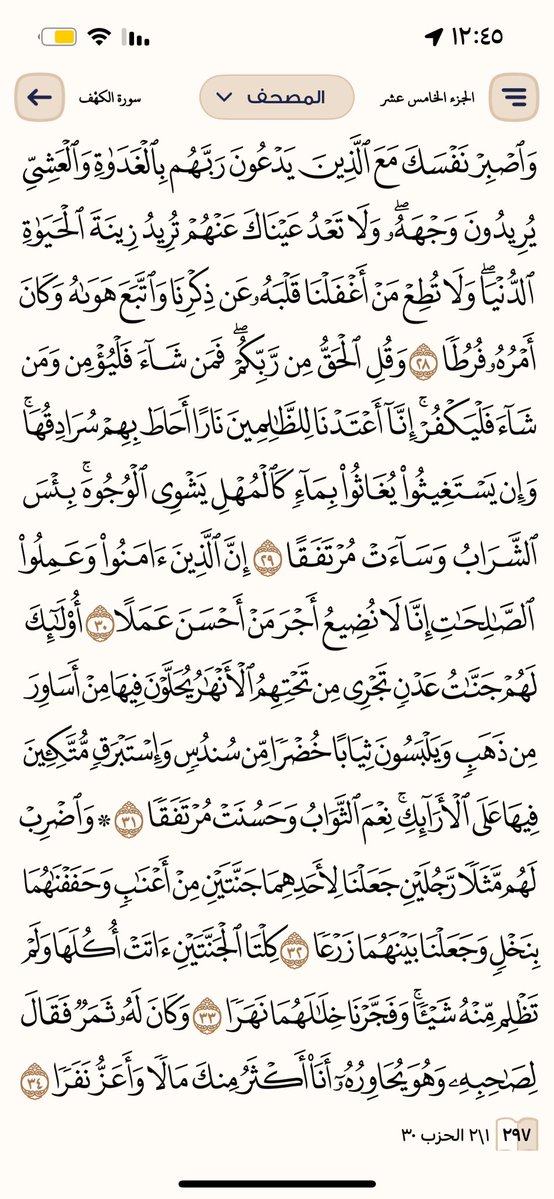 ١٢:٤٥
الجزء الخامس عشر المصحف سورة الكهف
وَٱصۡبِرۡ نَفۡسَكَ مَعَ ٱلَّذِينَ يَدۡعُونَ رَبَّهُم بِٱلۡغَدَوٰةِ وَٱلۡعَشِيِّ
يُرِيدُونَ وَجۡهَهُۥۖ وَلَا تَعۡدُ عَيۡنَاكَ عَنۡهُمۡ تُرِيدُ زِينَةَ ٱلۡحَيَوٰةِ
ٱلدُّنۡيَاۖ وَلَا تُطِعۡ مَنۡ أَغۡفَلۡنَا قَلۡبَهُۥ عَن ذِكۡرِنَا وَٱتَّبَعَ هَوَىٰهُ وَكَانَ
أَمۡرُهُۥ فُرُطٗا ٢٨ وَقُلِ ٱلۡحَقُّ مِن رَّبِّكُمۡۖ فَمَن شَآءَ فَلۡيُؤۡمِن وَمَن
شَآءَ فَلۡيَكۡفُرۡۚ إِنَّآ أَعۡتَدۡنَا لِلظَّٰلِمِينَ نَارًا أَحَاطَ بِهِمۡ سُرَادِقُهَاۚ
وَإِن يَسۡتَغِيثُواْ يُغَاثُواْ بِمَآءٖ كَٱلۡمُهۡلِ يَشۡوِي ٱلۡوُجُوهَۚ بِئۡسَ
ٱلشَّرَابُ وَسَآءَتۡ مُرۡتَفَقًا ٢٩ إِنَّ ٱلَّذِينَ ءَامَنُواْ وَعَمِلُواْ
ٱلصَّٰلِحَٰتِ إِنَّا لَا نُضِيعُ أَجۡرَ مَنۡ أَحۡسَنَ عَمَلًا ٣٠ أُوْلَٰٓئِكَ
لَهُمۡ جَنَّٰتُ عَدۡنٖ تَجۡرِي مِن تَحۡتِهِمُ ٱلۡأَنۡهَٰرُ يُحَلَّوۡنَ فِيهَا مِنۡ أَسَاوِرَ
مِن ذَهَبٖ وَيَلۡبَسُونَ ثِيَابًا خُضۡرٗا مِّن سُندُسٖ وَإِسۡتَبۡرَقٖ مُّتَّكِـِٔينَ
فِيهَا عَلَى ٱلۡأَرَآئِكِۚ نِعۡمَ ٱلثَّوَابُ وَحَسُنَتۡ مُرۡتَفَقٗا ٣١ ۞ وَٱضۡرِبۡ
لَهُم مَّثَلٗا رَّجُلَيۡنِ جَعَلۡنَا لِأَحَدِهِمَا جَنَّتَيۡنِ مِنۡ أَعۡنَٰبٖ وَحَفَفۡنَٰهُمَا
بِنَخۡلٖ وَجَعَلۡنَا بَيۡنَهُمَا زَرۡعٗا ٣٢ كِلۡتَا ٱلۡجَنَّتَيۡنِ ءَاتَتۡ أُكُلَهَا وَلَمۡ
تَظۡلِم مِّنۡهُ شَيۡـٔٗاۚ وَفَجَّرۡنَا خِلَٰلَهُمَا نَهَرٗا ٣٣ وَكَانَ لَهُۥ ثَمَرٞ فَقَالَ
لِصَٰحِبِهِۦ وَهُوَ يُحَاوِرُهُۥٓ أَنَا۠ أَكۡثَرُ مِنكَ مَالٗا وَأَعَزُّ نَفَرٗا ٣٤
٢٩٧ ١\٢ الحزب ٣٠